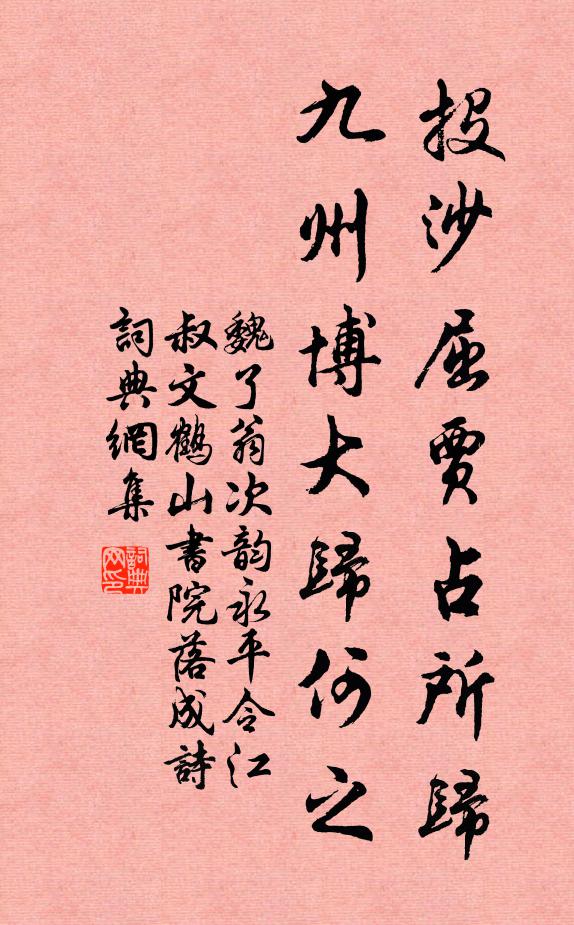 投沙屈賈占所歸
九州博大歸何之
魏了翁次韵永平令江
叔文鶴山書院落成詩
詞典網集
詞典网印